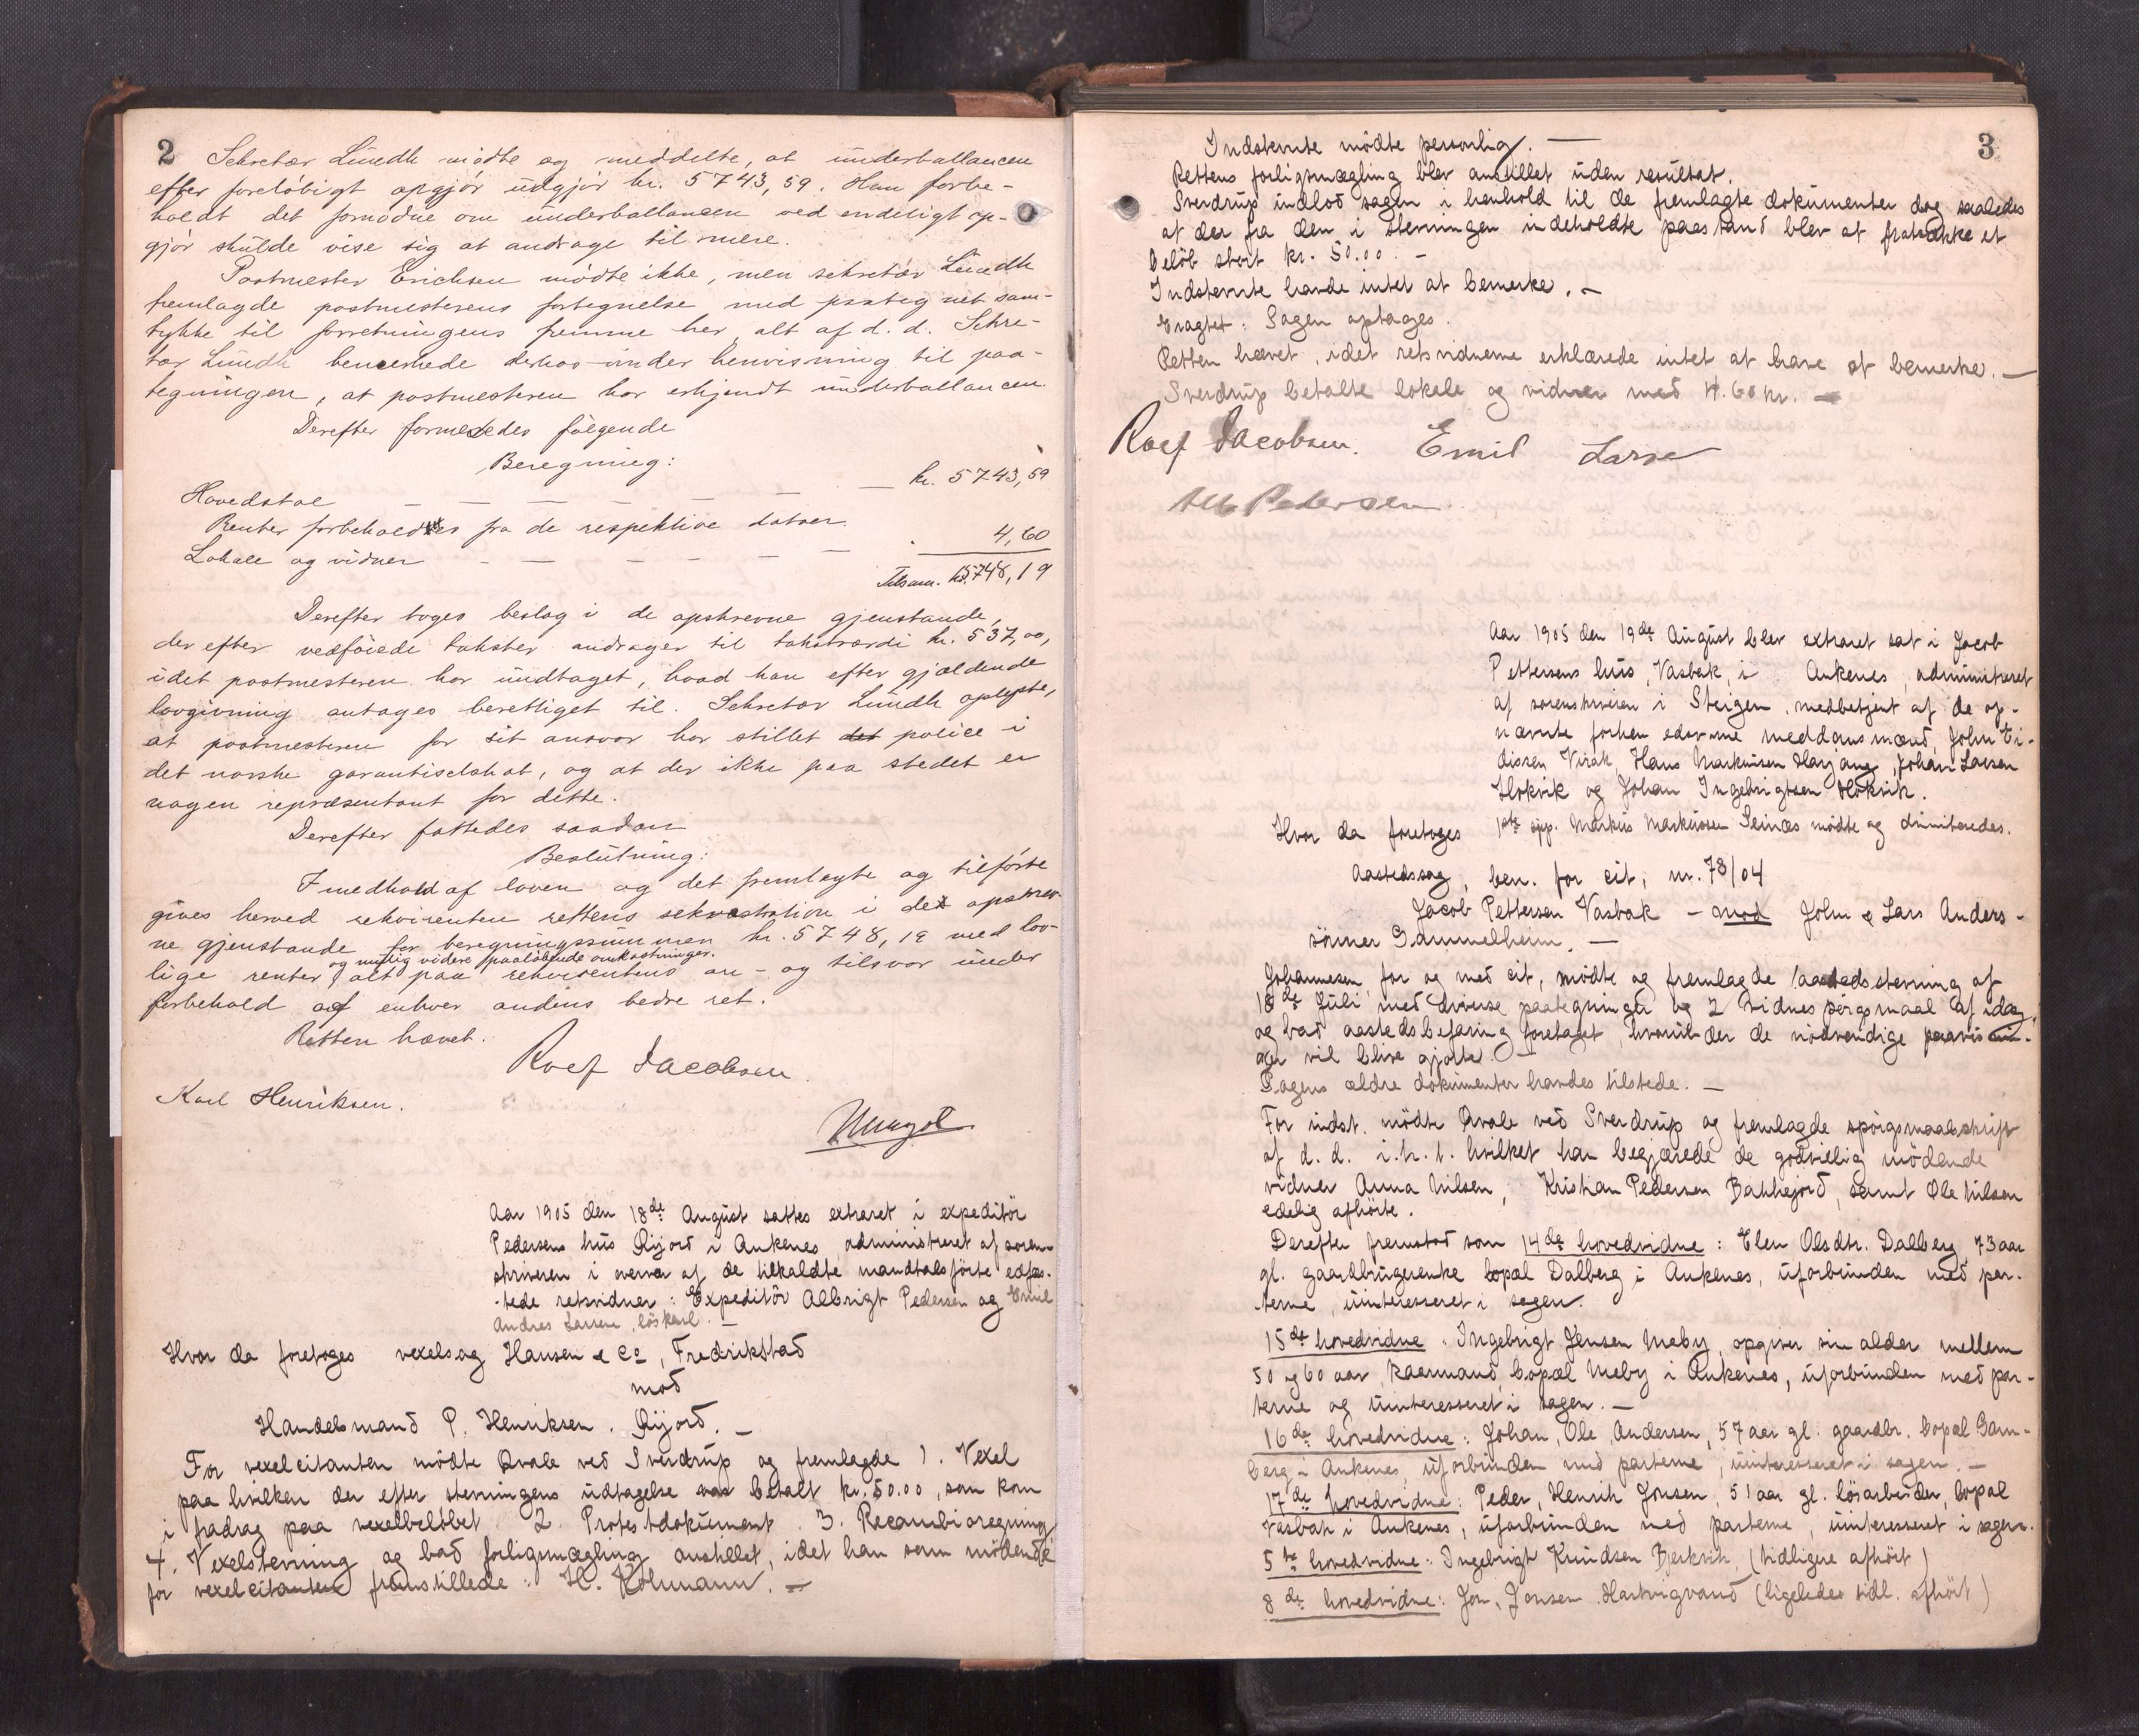 2
Sekretær Lundh mødte og meddelte, at underballancen
efter foreløbigt opgjør udgjør kr. 5743,59. Han forbe-
holdt det fornødne om underballancen ved endeligt op-
gjør skulde vise sig at andrage til mere.
Postmester Erichsen mødte ikke, men sekretær Lundh
fremlagde postmesterens fortegnelse med paategnet sam-
tykke til forretningens fremme her, alt af d. d. Sekre-
tær Lundh bemerkede derhos under henvisning til paa-
tegningen, at postmesteren har erkjendt underballancen.
Derefter formeredes følgende
Beregning:
Hovedstol — — — — — — kr. 5743,59
Renter forbeholdes fra de respektive datoer.
Lokale og vidner — — — — 4,60
Tilsam. kr. 5748,19
Derefter toges beslag i de opskrevne gjenstande,
der efter vedføiede takster andrager til takstværdi kr. 537,00,
idet postmesteren har undtaget, hvad han efter gjældende
lovgivning antages berettiget til. Sekretær Lundh oplyste,
at postmesteren for sit ansvar har stillet det police i
det norske garantiselskab, og at der ikke paa stedet er
nogen repræsentant for dette.
Derefter fattedes saadan
Beslutning:
I medhold af loven og det fremlagte og tilførte
gives herved rekvirenten rettens sekvestration i de opskrev-
ne gjenstande for beregningssummen kr. 5748,19 med lov-
og mulig videre paaløbende omkostninger.
lige renter alt paa rekvirentens an- og tilsvar under
forbehold af enhver andens bedre ret.
Retten hævet.
Roef Jacobsen
Karl Henriksen.
Aar 1905 den 18de August sattes extraret i expeditør
Pedersens hus Rijord i Ankenes administreret af soren-
skriveren i nærvær af de tilkaldte mandtalsførte edfæs-
tede retsvidner: Expeditør Albrigt Pedersen og Emil
Andreas Larsen, løskarl. —
Hvor da foretoges vexelsag Hansen & Co, Fredrikstad
mod
Handelsmand P. Henriksen. Rijord. —
For vexelcitanten mødte Qvale ved Sverdrup og fremlagde 1. Vexel
paa hvilken der efter stevningens udtagelse var betalt kr. 50.00, som kom
i fradrag paa vexelbeløbet 2. Protestdokument. 3. Recambioregning
4. Vexelstevning og bad forligsmægling anstillet, idet han som mødende
for vexelcitanten fremstillede: H. Kohmann. —
3
Indstevnte mødte personlig. —
Rettens forligsmægling blev anstillet uden resultat.
Sverdrup indlod sagen i henhold til de fremlagte dokumenter dog saaledes
at der fra den i stevningen indeholdte paastand blev at fratrække et
beløb stort kr. 50.00. —
Indstevnte havde intet at bemerke. —
Eragtet: Sagen optages.
Retten hævet, idet retsvidnerne erklærede intet at have at bemerke. —
Sverdrup betalte lokale og vidner med 4.60 kr. —
Roef Jacobsen. Emil Larse
Alb Pedersen
Aar 1905 den 19de August blev extraret sat i Jacob
Pettersens hus, Vasbak, i Ankenes, administreret
af sorenskriveren i Steigen, medbetjent af de op-
nævnte forhen edsvorne meddomsmænd, John Ei-
dissen Virak, Hans Markusen Harjang, Johan Larsen
Elvkrik og Johan Ingebrigtsen Elvkrik.
Hvor da foretoges 1ste opp. Markus Markussen Seines mødte og dimitteredes.
aastedssag, ben. for cit, nr. 78/04
Jacob Pettersen Vasbak — mod John & Lars Anders-
sønner Gammelheim. —
Johannesen for og med cit, mødte og fremlagde aastedsstevning af
18de Juli med diverse paategninger og 2 vidnespørgsmaal af idag,
og bad aastedsbefaring foretaget hvorunder de nødvendige paavisnin-
ger vil blive gjorte. —
Sagens ældre dokumenter havdes tilstede. —
For indst. mødte Qvale ved Sverdrup og fremlagde spørgsmaalsskrift
af d. d. i. h. t. hvilket han begjærede de godvillig mødende
vidner Anna Nilsen, Kristian Pedersen Bakkejord, samt Ole Nilsen
edelig afhørte.
Derefter fremstod som 14de hovedvidne: Elen Olsdtr. Dalberg, 73 aar
gl. gaardbrugerenke bopæl Dalberg i Ankenes, uforbunden med par-
terne, uinteresseret i sagen.
15de hovedvidne: Ingebrigt Jensen Meby, opgiver sin alder mellem
50 og 60 aar, kaarmand, bopæl Meby i Ankenes, uforbunden med par-
terne og uinteresseret i sagen. —
16de hovedvidne: Johan, Ole, Andersen, 57 aar gl. gaardbr. bopæl Gam-
berg i Ankenes, uforbunden med parterne, uinteresseret i sagen. —
17de hovedvidne: Peder, Henrik Jonsen, 51 aar gl. løsarbeider, bopæl
Vasbak i Ankenes, uforbunden med parterne, uinteresseret i sagen.
5te hovedvidne: Ingebrigt Knudsen Bjerkvik, (tidligere afhørt)
8de hovedvidne: Jon, Jonsen Hartvigvand (ligeledes tidl. afhørt)